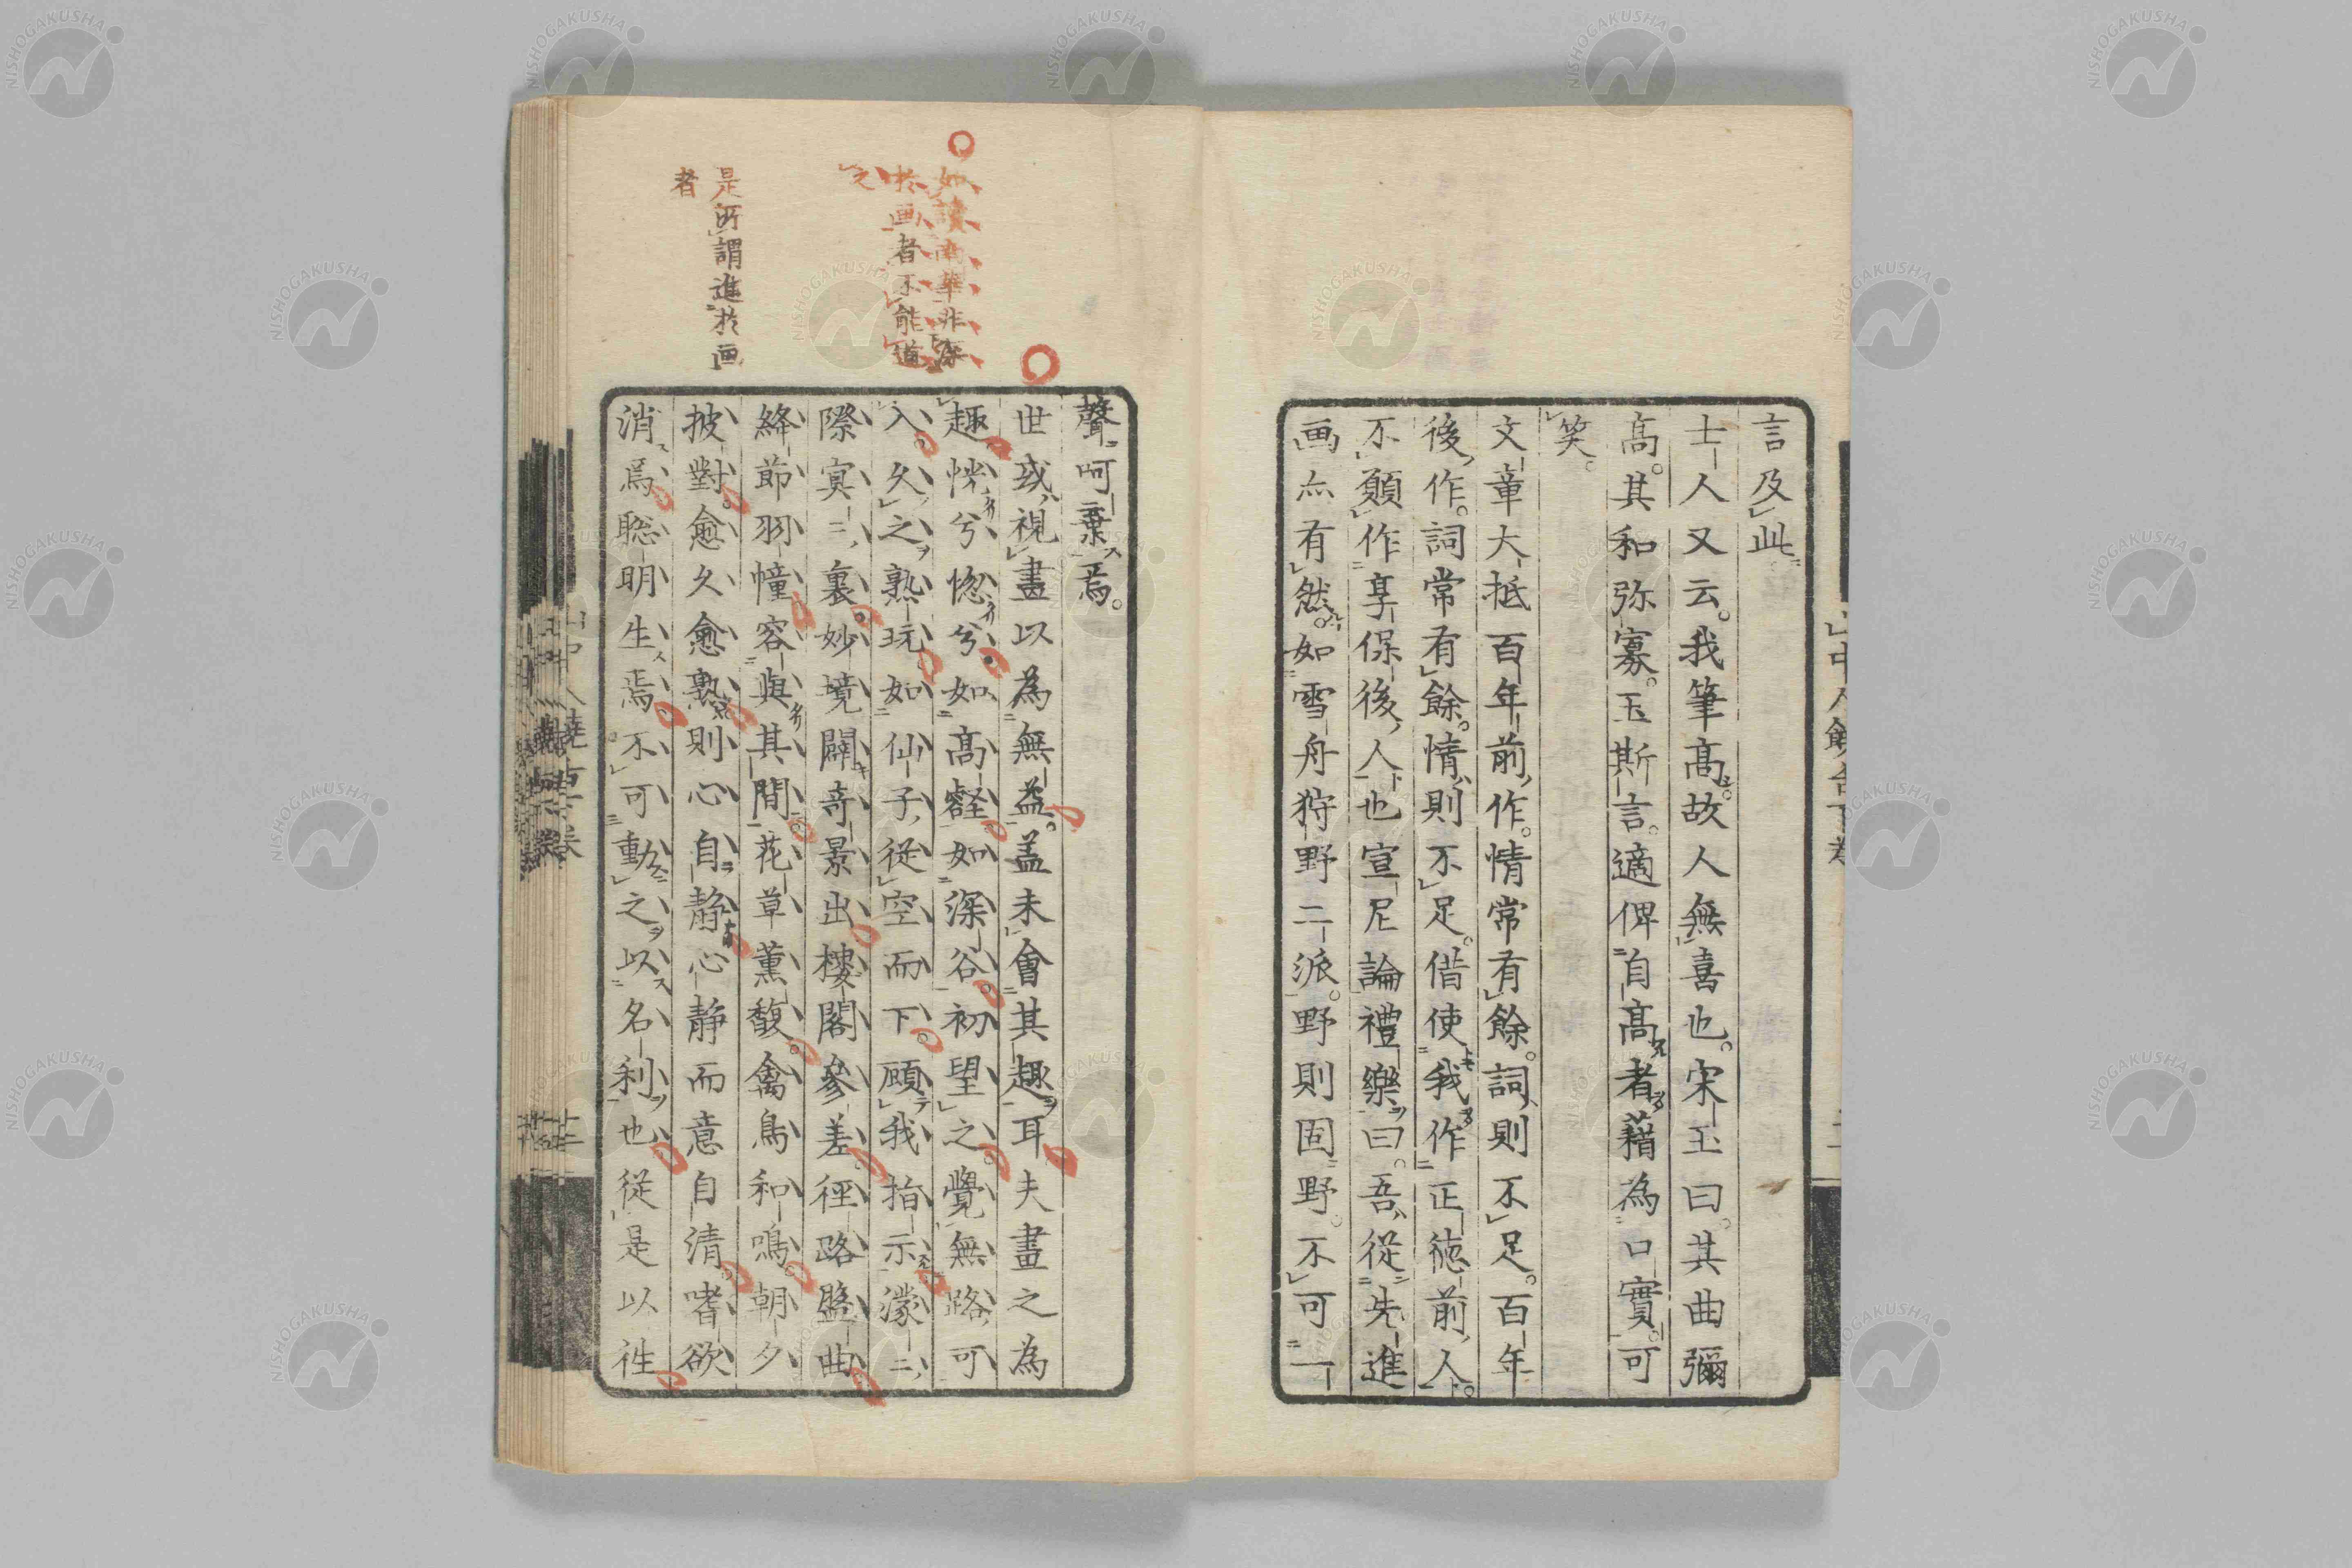 言及此
士人又云。我筆高。故人無喜也。宋玉曰。其曲彌
高。其和弥寡。玉斯言。適俾自高者藉為口實。可
笑。
文章大抵百年前作。情常有餘。詞則不足。百年
後作。詞常有餘。情則不足。借使我作正徳前人。
不願作享保後人也。宣尼論禮樂曰。吾從先進
画亦有然。如雪舟狩野二派。野則固野。不可一
聲呵棄焉。
世或視畫以為無益。盖未會其趣耳夫畫之為
趣恍兮惚兮。如高壑如深谷。初望之覺無路可
入。久之熟玩如仙子從空而下。顧我指示濛ニ
際冥ニ裏妙境闢奇景出樓閣參差。徑路盤曲
絳節羽幢容與其間。花草薰馥。禽鳥和鳴朝夕
披對。愈久愈熟則心自静心静而意自清嗜欲
消焉聡明生焉。不可動之以名利也從是以徃
如讀南華非深
於画者不能道
之
是所謂進於画
者